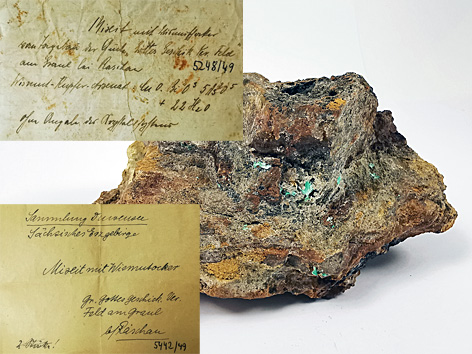 Mixit mit Wismutocker
vom Tagebau der Grube Gottes Geschick Ver. Feld
am Graul bei Raschau 5248/49
Wismut-Kupfer-Arsenat: Cu O. 5As²O⁵
+ 22 H₂O
ohne Angabe der Krystallsystems
Sammlung
Sächsisches Erzgebirge
Mixit mit Wismutocker
Gr. Gottes Geschick Ver.
Feld am Graul
b/Raschau
2 Stücke! 5442/49